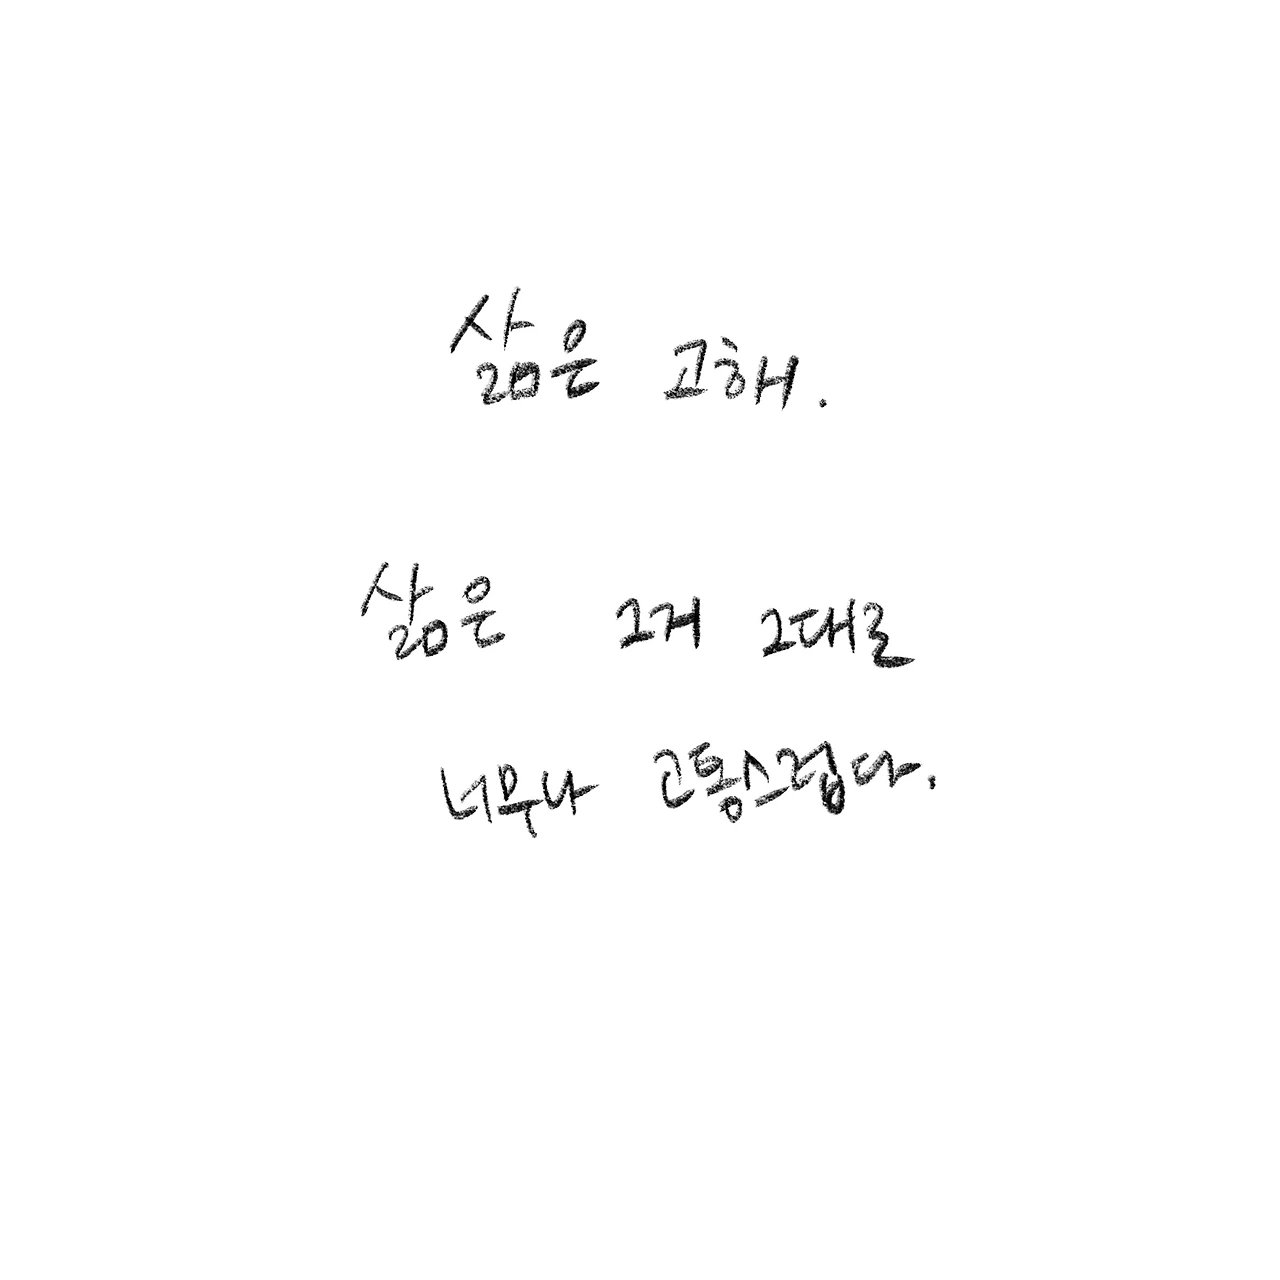 삶은 고해.
삶은 그거 그대로
너무나 고통스럽다.